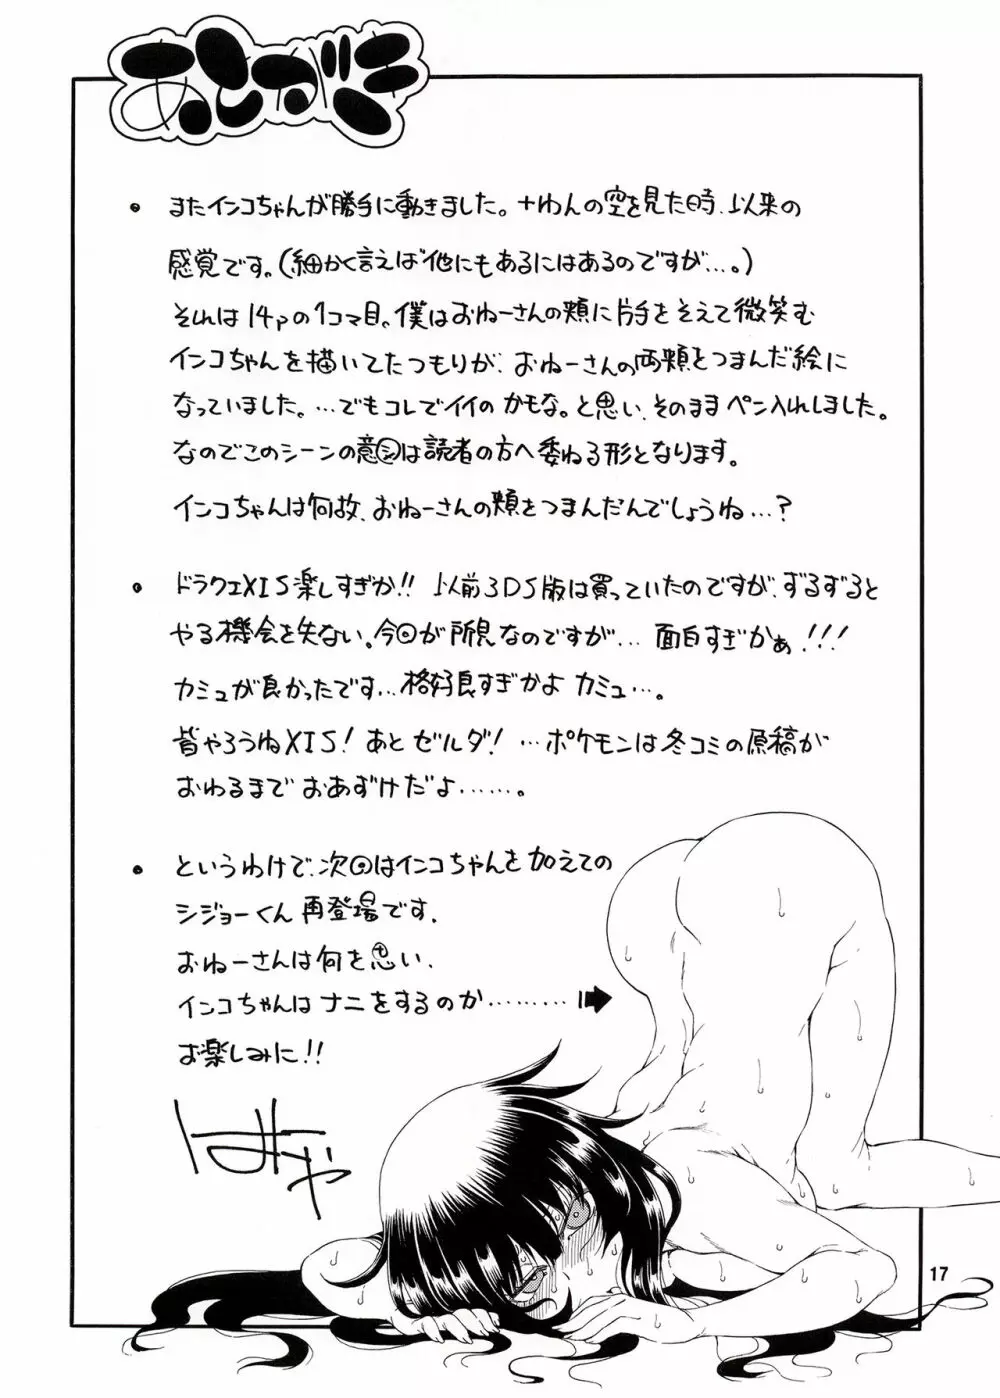 あとがき
・またインコちゃんが勝手に動きました。十わんの空を見た時、以来の
感覚です。(細かく言えば他にもあるにはあるのですが…。)
それは14pの1コマ目。僕はおねーさんの頬に片手をそえて微笑む
インコちゃんを描いてたつもりが、おねーさんの両頬をつまんだ絵に
なっていました。…でもコレでイイのかもな。と思い、そのままペン入れしました。
なのでこのシーンの意図は読者の方へ委ねる形となります。
インコちゃんは何故、おねーさんの頬をつまんだんでしょうね…?
・ドラクエXIS楽しすぎか!! 以前3DS版は買っていたのですが、ずるずると
やる機会を失ない。今回が所見なのですが… 面白すぎかぁ!!!
カミュが良かったです…格好良すぎかよカミュ…。
皆やろうねXIS! あとゼルダ! …ポケモンは冬コミの原稿が
おわるまでおあずけだよ……。
・というわけで、次回はインコちゃんを加えての
シジョーくん再登場です。
おねーさんは何を思い、
インコちゃんはナニをするのか………➡
お楽しみに!!
はみゃ
17